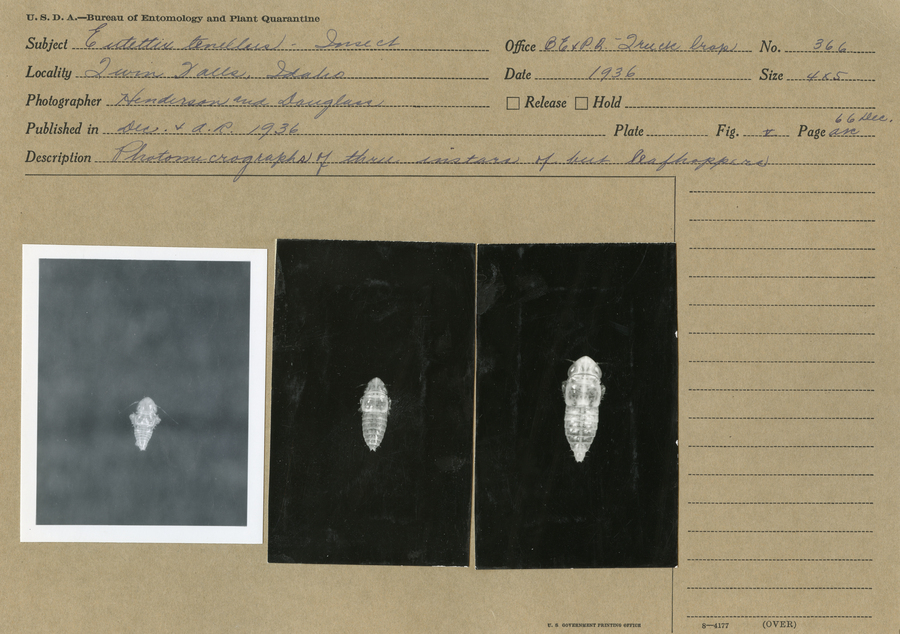 U. S. D. A.—Bureau of Entomology and Plant Quarantine
Subject Eutettix tenellus - Insect Office BE&PQ - Truck Crop No. 366
Locality Twin Falls, Idaho Date 1936 Size 4x5
Photographer Henderson and Douglass Release Hold
Published in Dec. 1936 Plate Fig. Page 66 Dec.
Description Photomicrographs of three instars of beet leafhoppers
U. S. GOVERNMENT PRINTING OFFICE 8—4177 (OVER)